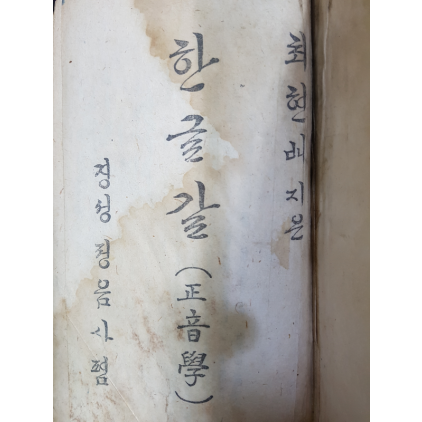 최현배 지은
한글갈(正音學)
경성 정음사 폄